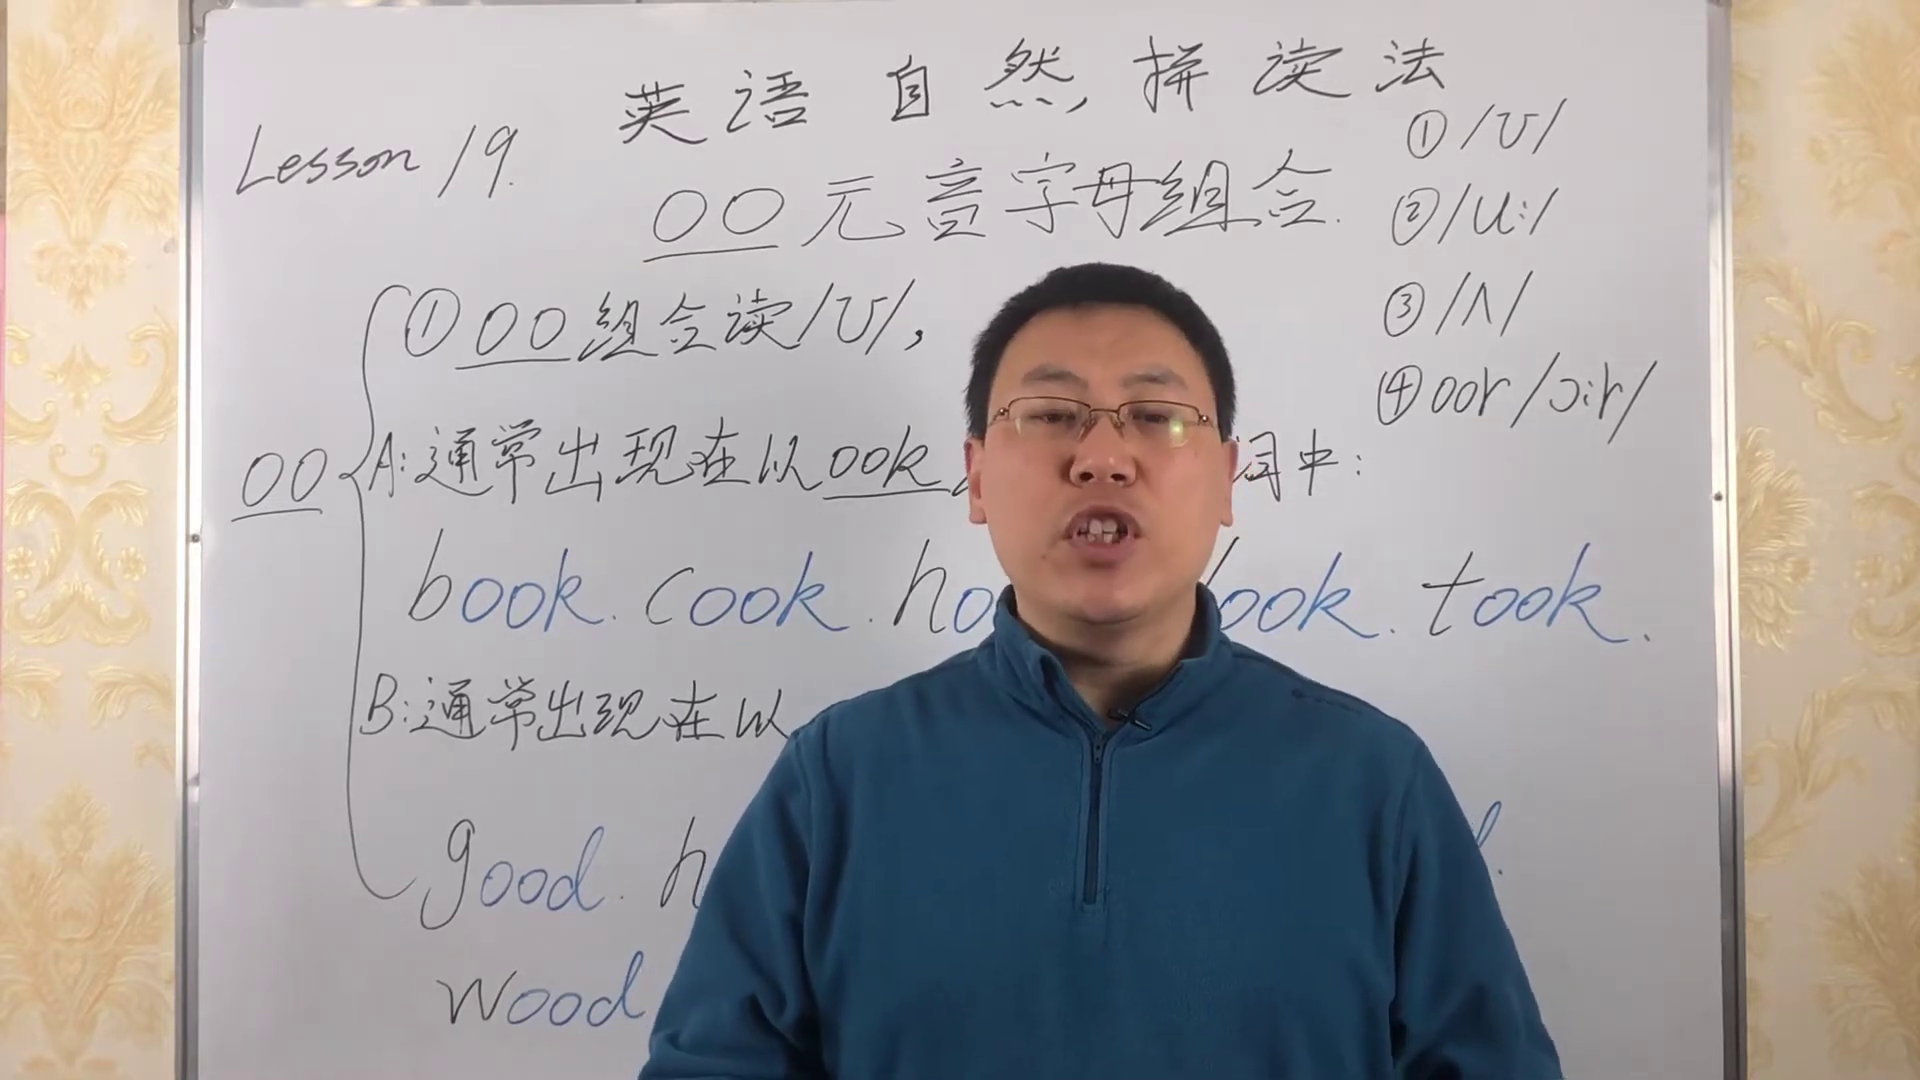 英语自然拼读法
Lesson 19.
OO元音字母组合.
①/ʊ/
②/u:/
③/ʌ/
④oor/ɔ:r/
oo
①oo组合读/ʊ/,
A:通常出现在以ook 词中:
book. cook. ook. took.
B:通常出现在以
good.
wood